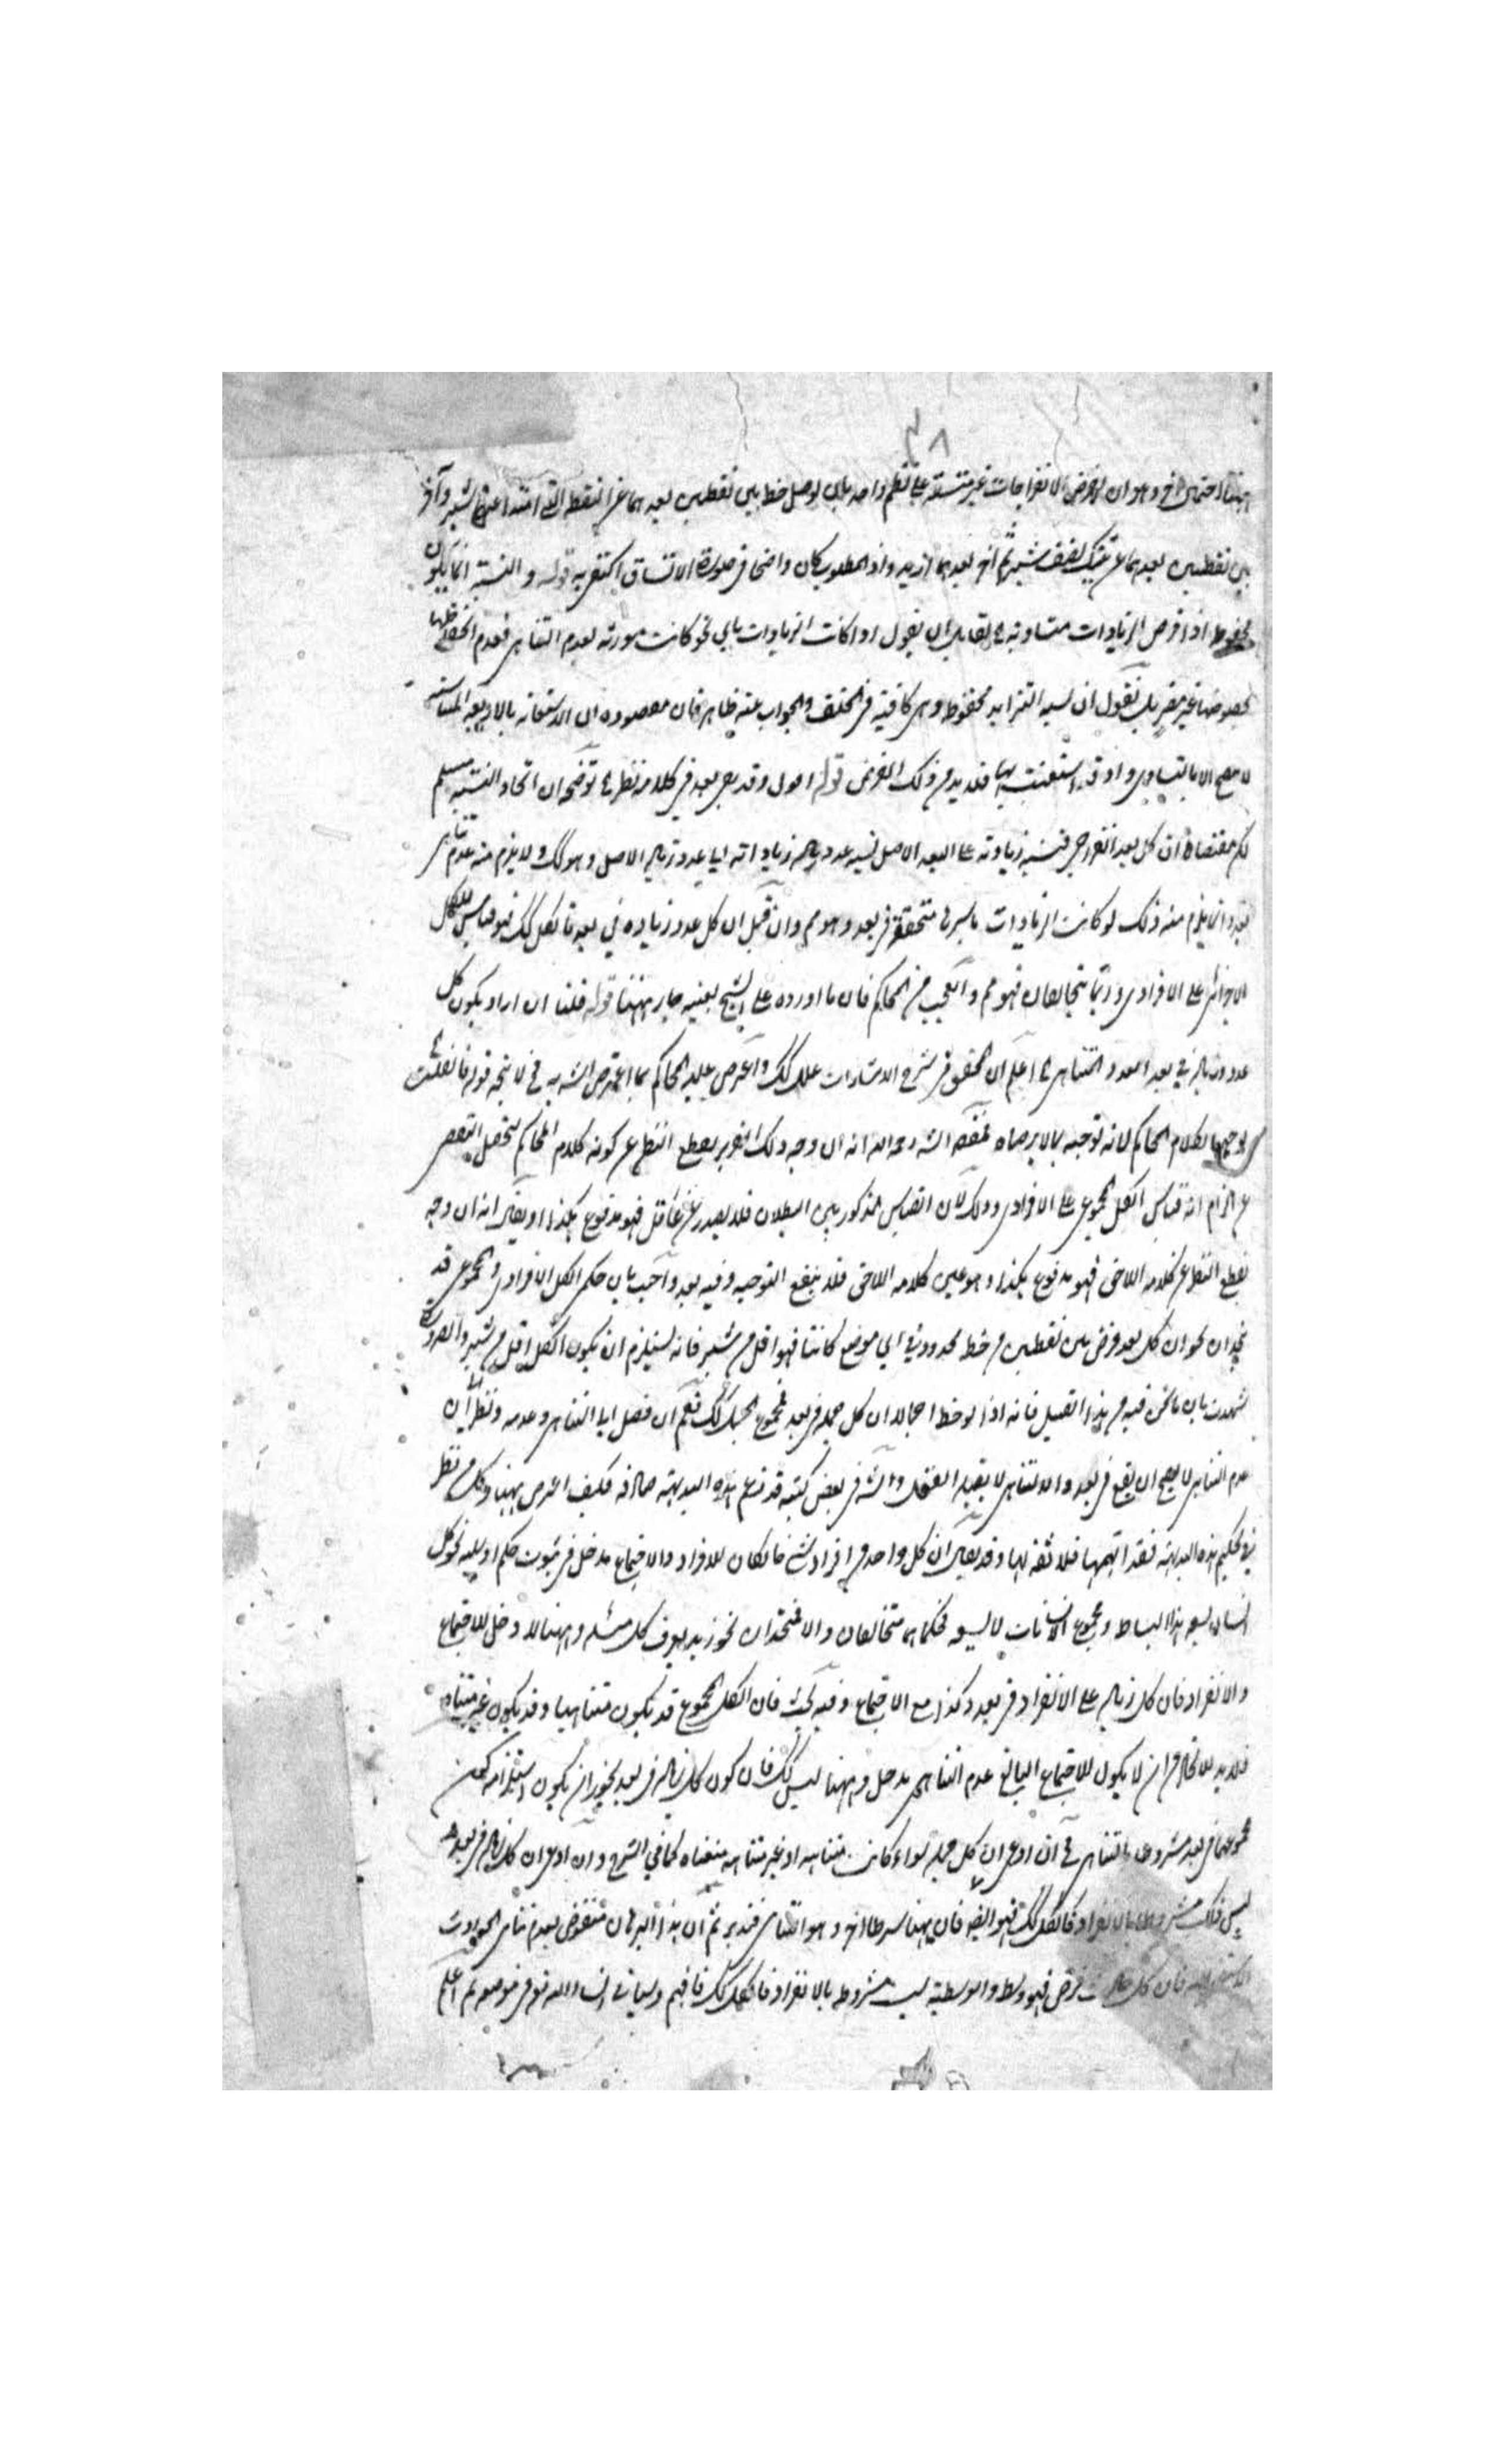 ٣٨
وهو ان يفرض الانفراجات غير متسقة على نظم واحد بان يوصل خط بين نقطتين بعدهما عن النقطة التي امتدا عنها شبر وآخر
بين نقطتين بعدهما عن تينك نصف شبر ثم آخر بعدهما ازيد واذ المطلوب كان واضحا في صورة الاتساق اكتفى به قوله و النسبة انما يكون
محفوظة اذا فرض الزيادات متساوية لقائل ان يقول اذا كانت الزيادات باي نحو كانت لعدم التناهي فعدم انحفاظها
بخصوصها غير مضر بل نقول ان نسبة التزايد محفوظ وهي كافية في الخلف والجواب عنه ظاهر فان مقصوده ان الاستعانة بالاربعة المتناسبة
لا يصح الا بالتساوي واذ قد استعنت بها فلا بد من ذلك الفرض قوله اقول وقد بقي بعد في كلامه نظر توضيحه ان اتحاد النسبة مسلم
لكن مقتضاه ان كل بعد انفراجي فنسبة زيادته على البعد الاصل نسبة عدد زياداته الى عدد الاصل وهو كك ولا يلزم منه عدم تناهي
بعد وانما يلزم منه ذلك لو كانت الزيادات باسرها متحققة في بعد وهو مم وان قيل ان كل عدد زيادة في بعد فالكل كك فهو قياس للكل
على الافرادي وربما يتخالفان فهو مم والعجب من المحاكم فان ما اورده على الشيخ بعينه جار ههنا قوله قلنا ان اراد بكون كل
عدد في بعد العدد المتناهي اعلم ان المحقق في شرح الاشارات علل كك واعترض عليه المحاكم بما اعترض الش به فح لا يتجه قوله فان قلت
توجيها لكلام المحاكم لانه توجيه بما لا يرضاه الش رحمه الله انه ان وجه ذلك التقرير بقطع النظر عن كونه كلام المحاكم ليحصل
عن الزام انه قياس الكل المجموعي على الافرادي وذلك لان القياس المذكور بين البطلان فلا يصدر عن عاقل فهو مدفوع بكذا او يقال انه ان وجه
بقطع النظر عن كلامه اللاحق فهو مدفوع بكذا وهو عين كلامه اللاحق فلا ينفع التوجيه وفيه بعد واجيب بان حكم الكل الافرادي والمجموعي قد
يتحدان نحو ان كل بعد فرض بين نقطتين من خط محدود في اي موضع كانتا فهو اقل من شبر فانه يستلزم ان يكون الكل اقل من شبر والضرورة
شهدت بان ما نحن فيه من هذا القبيل فانه اذا لوحظ اجمالا ان كل جملة في بعد فمجموع الجمل كك نعم ان فصل الى التناهي وعدمه ونظر ان
عدم التناهي لا يصح ان يقع في بعد والا لتناهى لا يقبله العقل والش في بعض كتبه قد زعم هذه البديهة صادقة فكيف اعترض ههنا وكل من نظر
في تحكيم هذه البديهة فقد اتهمها فلا ثقة بها وقد يقال ان كل واحد من افراد شئ فان كان للافراد والاجتماع مدخل في ثبوت حكم او سلبه نحو كل
انسان يسعه هذا البساط ومجموع الانسانات لا يسعه فحكماهما متخالفان والا فمتحدان نحو زيد يعرف كل مسئلة وههنا لا دخل للاجتماع
والانفراد فان كل زيادة على الانفراد في بعد وكذا مع الاجتماع وفيه بحث فان الكل المجموع قد يكون متناهيا وقد يكون غير متناه
فلا بد للاتحاد من ان لا يكون للاجتماع البالغ عدم التناهي مدخل وههنا ليس كك فان كون كل زيادة في بعد يجوز ان يكون استلزامه كون
مجموعها في بعد مشروطا بالتناهي فح ان ادعى ان كل جملة سواء كانت متناهية او غير متناهية منعناه كما في الشرح وان ادعى ان كل زيادة في بعد
ليس ذلك مشروطا بالانفراد فالكل كك فهو ايضا فان ههنا شرطا آخر وهو التناهي فتدبر ثم ان هذا البرهان منقوض بعدم تناهي الحوادث
فان كل فرض فهو وسط والوسطية ليست مشروطة بالانفراد فالكل كك فافهم وسيأتي انشاء الله تع في موضعه ثم اعلم